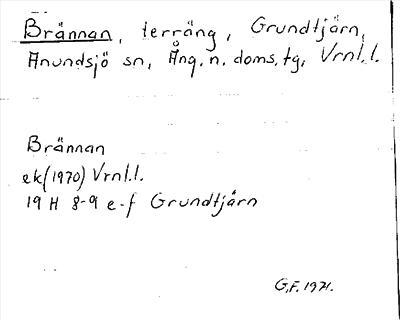 Brännan, terräng, Grundtjärn,
Anundsjö sn, Ång. n. doms. tg, Vrnl.l.
Brännan
ek (1970) Vrnl.l.
19 H 8-9 e-f Grundtjärn
G.F. 1971.